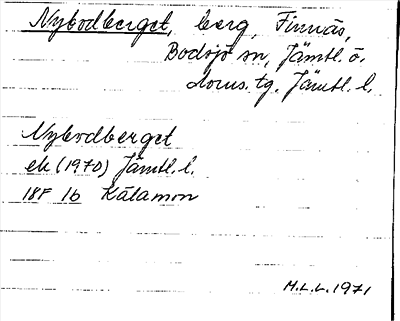 Nybodberget, berg, Finnäs,
Bodsjö sn, Jämtl. ö.
doms. tg. Jämtl. l.
Nybodberget
ek (1970) Jämtl. l.
18F 1b Kälarmon
M.L.L. 1971